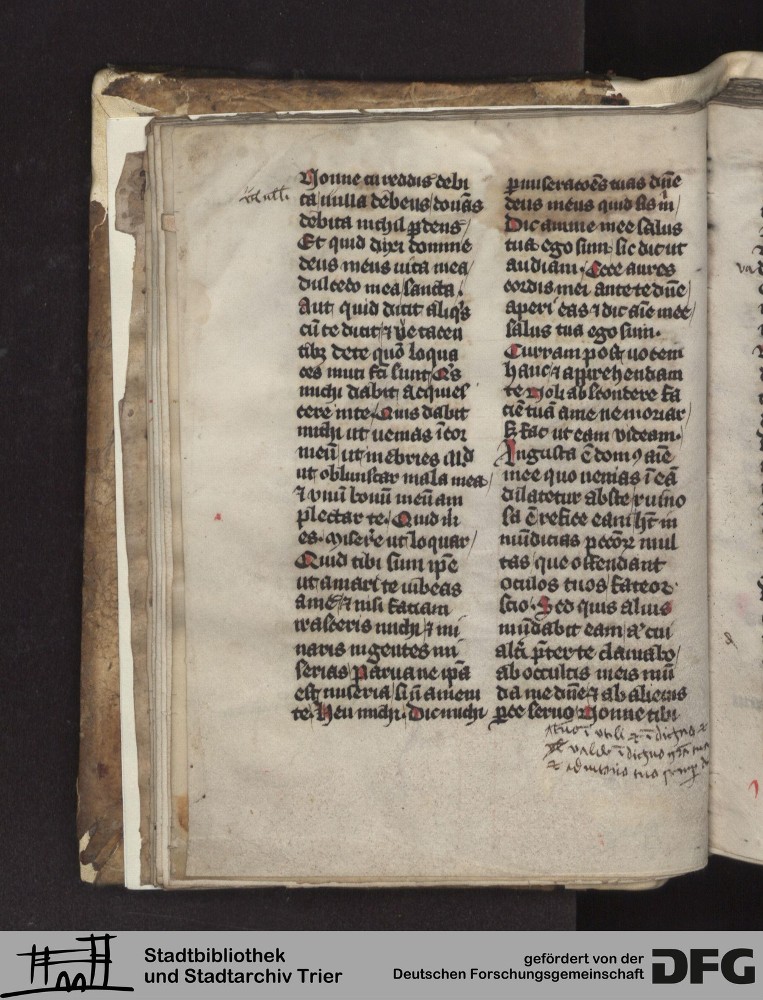 Nonne tu reddis debi
ta / nulla debens / donās
debita nichil ꝑdens /
Et quid dixi domine
deus meus uita mea /
dulcedo mea / sancta.
Aut quid dicit aliqͥs
cū te dicit / ⁊ ve tacen
tibꝫ de te quō loqua
ces muti fc̄i sunt. Qͥs
michi dabit acquies
cere in te. Quis dabit
michi ut uenias ī cor
meū / ut inebries illd̄
ut obliuiscar mala mea /
⁊ vnū bonū meū am
plectar te. Quid m̄
es. Misere̅ ut loquar /
Quid tibi sum ip̄e
ut amari te iubeas
a me / ⁊ nisi faciam
irasceris michi / ⁊ mi
naris ingentes mi
serias Parua ne ip̄a
est miseria / si n̄ amem
te. Heu michi. Dic michi
ꝑ miseracōēs tuas dn̄e
deus meus quid sis m̄ /
Dic anime mee salus
tua ego sum / sic dic ut
audiam. Ecce aures
cordis mei ante te dn̄e /
aperi eas / ⁊ dic aīe mee /
salus tua ego sum.
Curram post uocem
hanc / ⁊ apprehendam
te Noli abscondere fa
ciē tuā a me ne moriar /
sꝫ fac ut eam videam.
Angusta ē domꝰ aīe
mee quo uenias ī eā
dilatetur abs te / ruino
sa ē refice eam / hꝫt in
mūdicias pecc̄oꝝ mul
tas / que offendant
oculos tuos / fateor
scio. Sed quis alius
mūdabit eam / aᵗ cui
alt̄i p̄ter te clamabo /
ab occultis meis mū
da me dn̄e / ⁊ ab alienis
ꝑce seruo / Nonne tibi
Stadtbibliothek
und Stadtarchiv Trier
gefördert von der
Deutschen Forschungsgemeinschaft
DFG